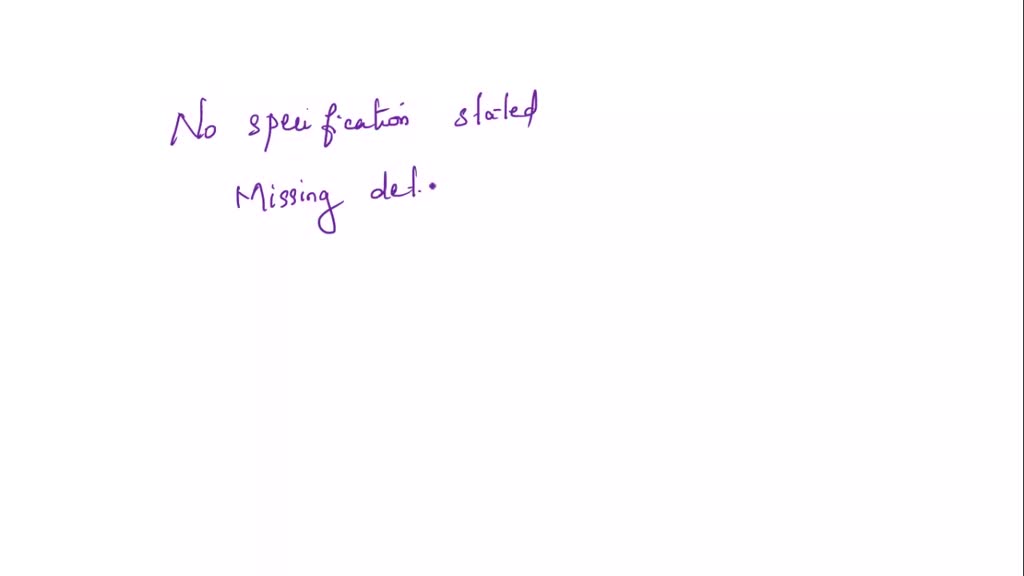 No specification stated
Missing det.